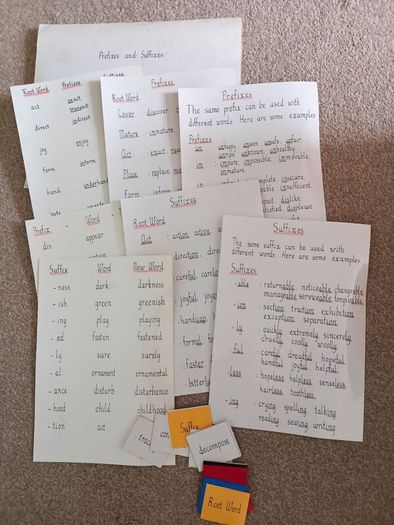 Prefixes and Suffixes
Root Word Prefixes
act exact
transact
direct indirect
joy enjoy
form inform
hand underhand
Prefixes
Root Word
Cover discover
Mature immature
Act exact
Place replace
Form inform
Prefixes
The same prefix can be used with
different words. Here are some examples
Prefixes
un unhappy unseen unsafe unfair
unripe unknown unhealthy
im impure impossible immovable
immature
insecure
insufficient
dislike
displease
Prefix Word
dis appear
Suffixes
Root Word
Act action active
direction
careful careless
joyful
handicap
formal
faster
bitterly
Suffix Word New Word
- ness dark darkness
- ish green greenish
- ing play playing
- ed fasten fastened
- ly sure surely
- al ornament ornamental
- ance disturb disturbance
- hood child childhood
- tion act
Suffixes
The same suffix can be used with
different words. Here are some examples
Suffixes
- able : returnable, noticeable changeable
manageable serviceable forgivable
- ion : section traction exhibition
exception separation
- ly : quickly extremely sincerely
cruelly coolly woolly
- ful : careful dreadful hopeful
handful joyful helpful
- less : hopeless helpless senseless
hairless toothless
- ing : crying spelling talking
reading sewing writing
Suffix
decompose
Root Word